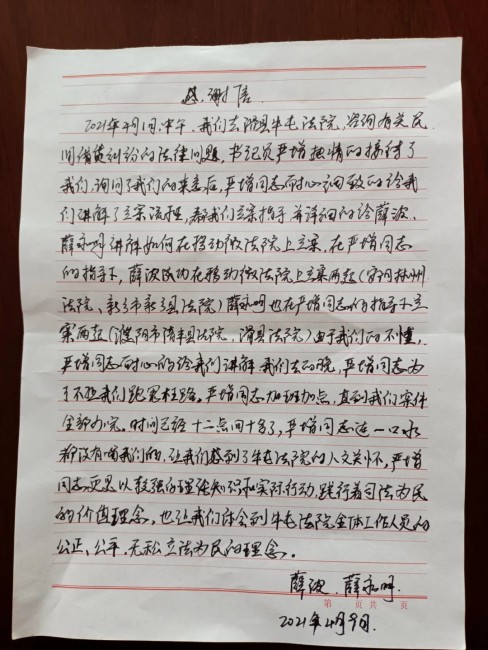 感谢信
2021年4月1日中午，我们去滑县牛屯法院，咨询有关民
间借贷纠纷的法律问题，书记员严增热情的接待了
我们，询问了我们的来意后，严增同志耐心细致的给我
们讲解了立案流程，帮我们立案指导，并详细的给薛波、
薛永明讲解如何在移动微法院上立案，在严增同志
的指导下，薛波成功在移动微法院上立案两起（安阳林州
法院、新乡市新乡县法院）薛永明也在严增同志的指导下立
案两起（濮阳市清丰县法院、滑县法院）由于我们的不懂，
严增同志耐心的给我们讲解，我们去的晚，严增同志为
了不让我们跑冤枉路。严增同志加班加点，直到我们案件
全部办完。时间已经十二点四十多了，严增同志连一口水
都没有喝我们的，让我们感到了牛屯法院的人文关怀，严增
同志更是以较强的理论知识和实际行动，践行着司法为民
的价值理念，也让我们体会到牛屯法院全体工作人员的
公正、公平、无私立法为民的理念。
薛波、薛永明
第 页 共 页
2021年4月9日.